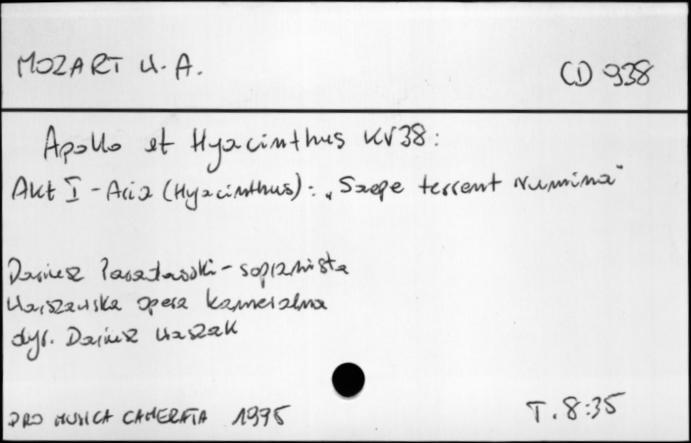 MOZART W. A.
CD 938
Apollo et Hyacinthus KV 38:
Akt I - Aria (Hyacinthus): „Saepe terrent Numina"
Dariusz Paradowski - sopranista
Warszawska opera kameralna
dyr. Dariusz Waszak
PRO MUSICA CAMERATA 1995
T. 8:35